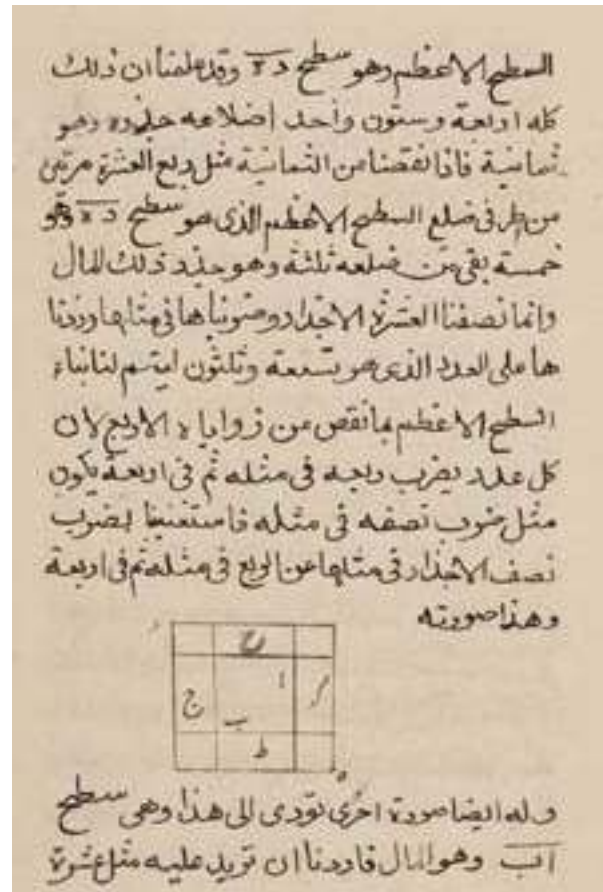 السطح الاعظم وهو سطح د ه وقد علمنا ان ذلك
كله اربعة وستون واحد اضلاعه جذره وهو
ثمانية فاذا نقصنا من الثمانية مثل ربع العشرة مرتين
من طرفى ضلع السطح الاعظم الذى هو سطح د ه وهو
خمسة بقى من ضلعه ثلثة وهو جذر ذلك المال
وانما نصفنا العشرة الاجذار وضربناها فى مثلها وزدنا
ها على العدد الذى هو تسعة وثلثون ليتم لنا بناء
السطح الاعظم بما نقص من زواياه الاربع لان
كل عدد يضرب ربعه فى مثله ثم فى اربعة يكون
مثل ضرب نصفه فى مثله فاستغنينا بضرب
نصف الاجذار فى مثلها عن الربع فى مثله ثم فى اربعة
وهذا صورته
د
ح
ا
ج
ب
ط
ه
وله ايضا صورة اخرى تؤدى الى هذا وهى سطح
اب وهو المال فاردنا ان نزيد عليه مثل عشرة